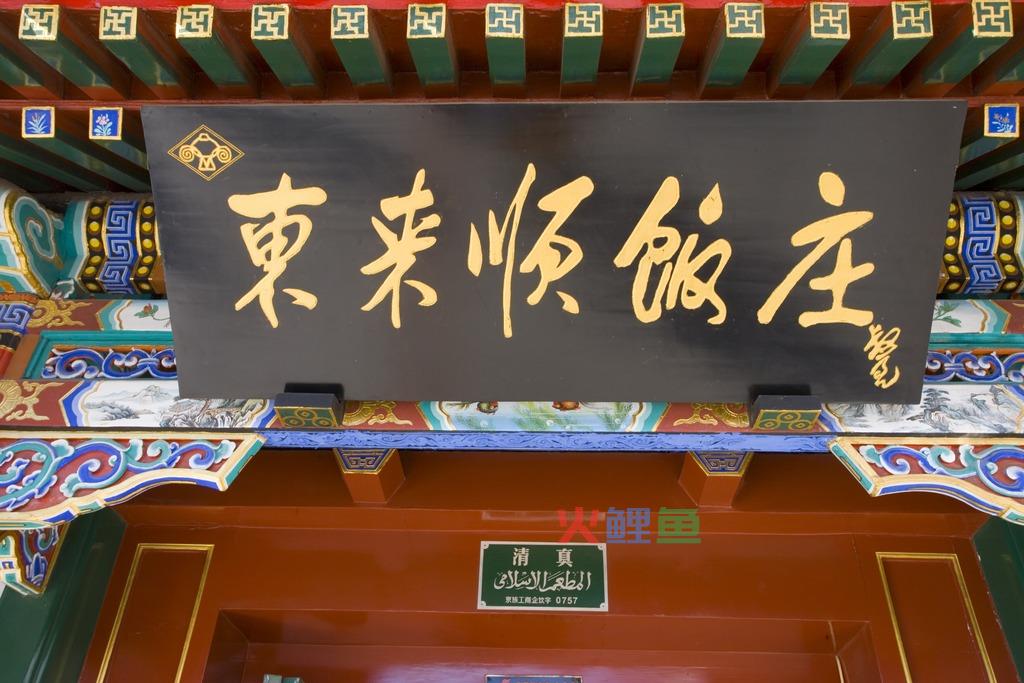 東来順飯庄
火鲤鱼
清真
المطعم الاسلامي
京族工商企饮字 0757